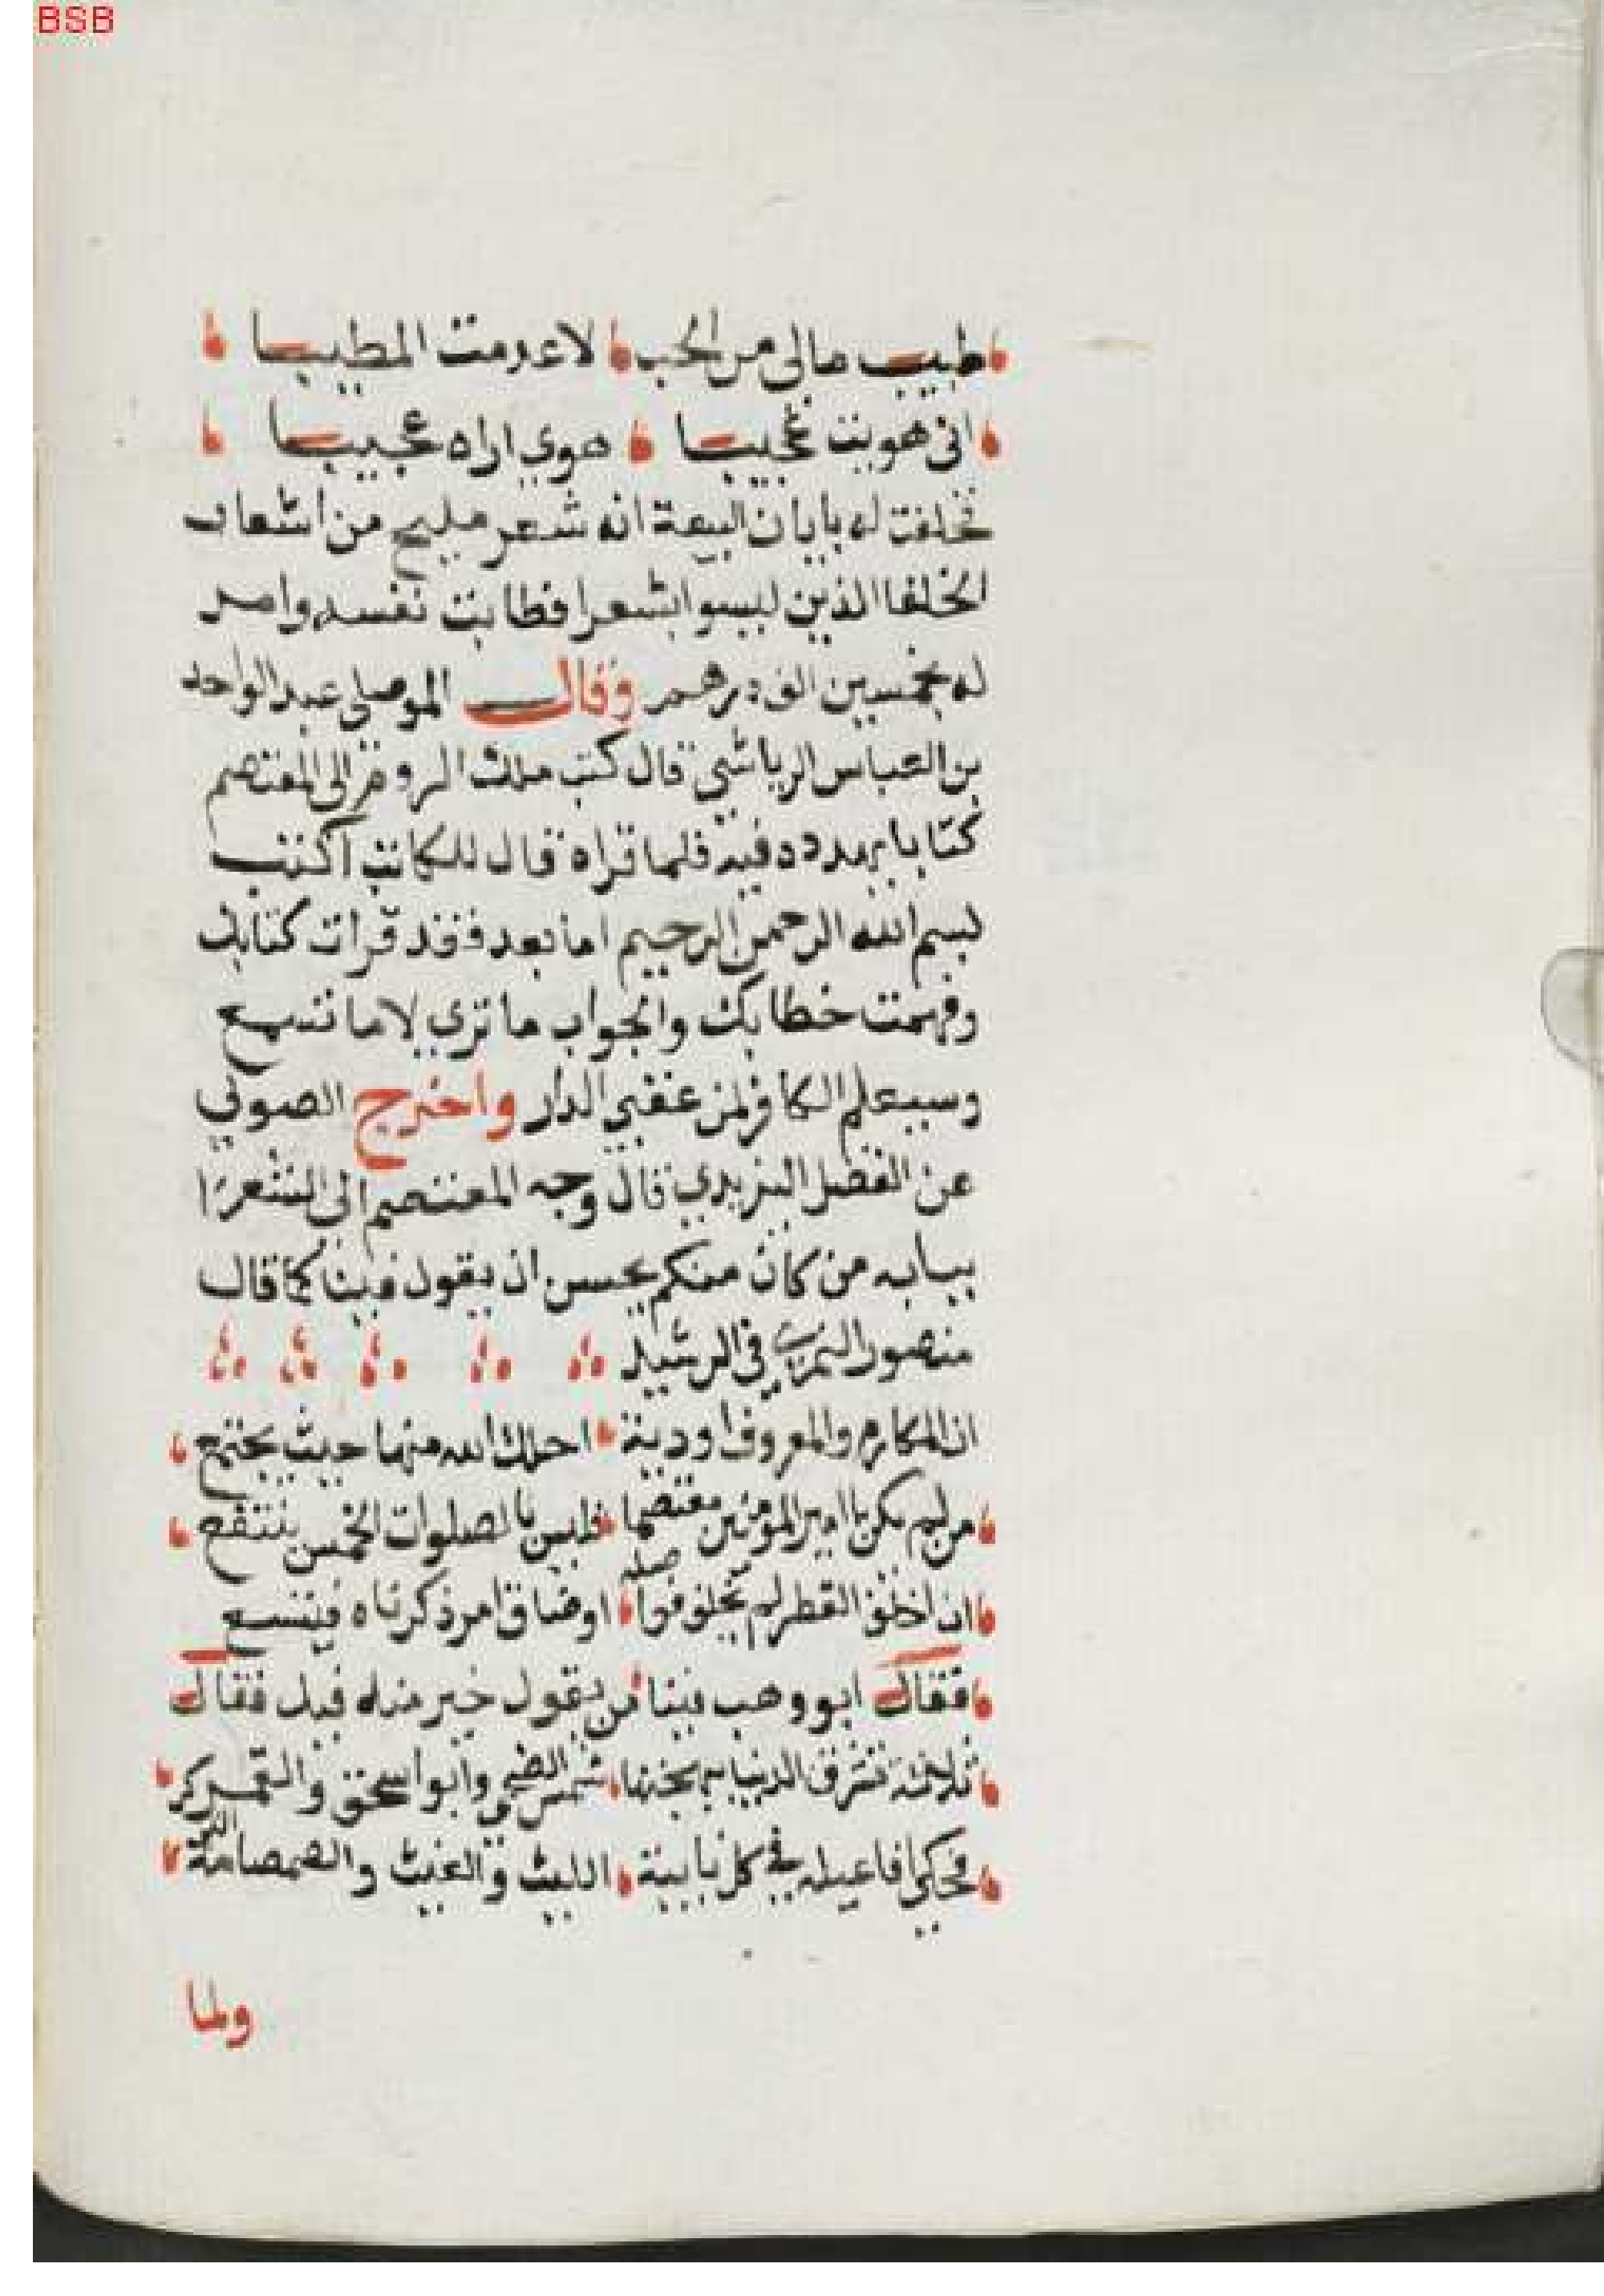 BSB
طبيب مالي من الحب لا عدمت الطبيبا
اني هويت عجيبا هوي اراه عجيبا
فحلفت له بايمان البيعة انه شعر مليح من اشعار
الخلفا الذين ليسوا بشعرا فطابت نفسه وامر
له بخمسين الف درهم وقال الموصلي عبد الواحد
بن العباس الرياشي قال كتب ملك الروم الى المعتصم
كتابا يهدده فيه فلما قراه قال للكاتب اكتب
بسم الله الرحمن الرحيم اما بعد فقد قرات كتابك
وفهمت خطابك والجواب ما تري لا ما تسمع
وسيعلم الكافر لمن عقبي الدار واخرج الصولي
عن الفضل اليزيدي قال وجه المعتصم الى الشعرا
ببابه من كان منكم يحسن ان يقول فينا كما قال
منصور النمري في الرشيد
ان المكارم والمعروف اودية احلك الله منها حيث يجتمع
من لم يكن باامير المؤمنين معتصما فليس بالصلوات الخمس ينتفع
ان اخلف القطر لم تخلف فواصله او ضاق امر ذكرناه فيتسع
فقال ابو وهب فينا من يقول خير منه قيل فقال
ثلاثة تشرق الدنيا ببهجتها شمس الضحي وابو اسحق والقمر
تحكي افاعيله في كل نايبة الليث والغيث والصمصامة الذكر
ولما